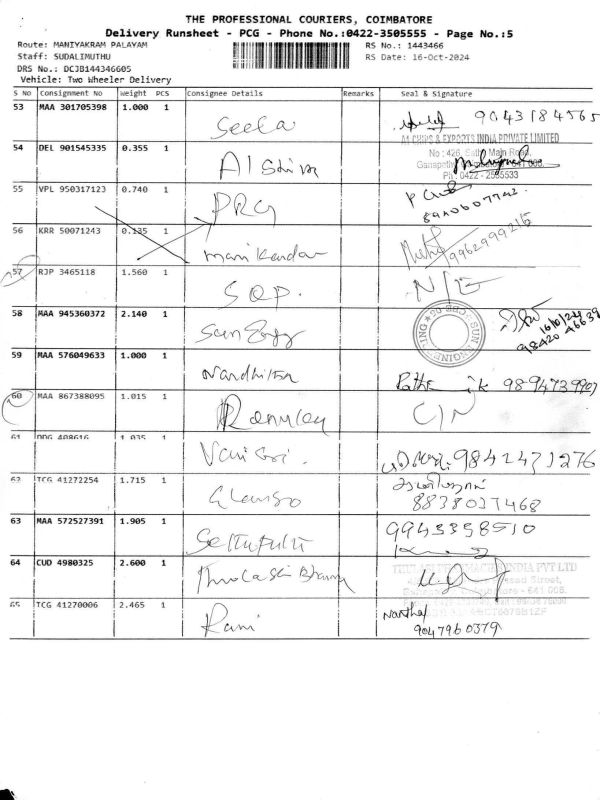 THE PROFESSIONAL COURIERS, COIMBATORE
Delivery Runsheet - PCG - Phone No.:0422-3505555 - Page No.:5
Route: MANIYAKRAM PALAYAM
RS No.: 1443466
Staff: SUDALIMUTHU
RS Date: 16-Oct-2024
DRS No.: DCJB144346605
Vehicle: Two Wheeler Delivery
S No Consignment No Weight PCS Consignee Details Remarks Seal & Signature
53 MAA 301705398 1.000 1 Seela 9043184565
A1 CHIPS & EXPORTS INDIA PRIVATE LIMITED
54 DEL 901545335 0.355 1 Al Shiva
No : 426, Main Road,
Ph : 0422 - 2595533
55 VPL 950317123 0.740 1 PRG
8940607742
56 KRR 50071243 0.135 1 Manikandan 9962999215
57 RJP 3465118 1.560 1 SQP. N/E
58 MAA 945360372 2.140 1 Sun Engg
16/10/24
98420 46639
59 MAA 576049633 1.000 1 Nandhitha 9894739907
60 MAA 867388095 1.015 1 C/N
61 DDG 408616 1.035 1 Vani Sri. 9842471276
62 TCG 41272254 1.715 1
8838037468
63 MAA 572527391 1.905 1 9943358510
64 CUD 4980325 2.600 1
INDIA PVT LTD
65 TCG 41270006 2.465 1 Rani
9047960379